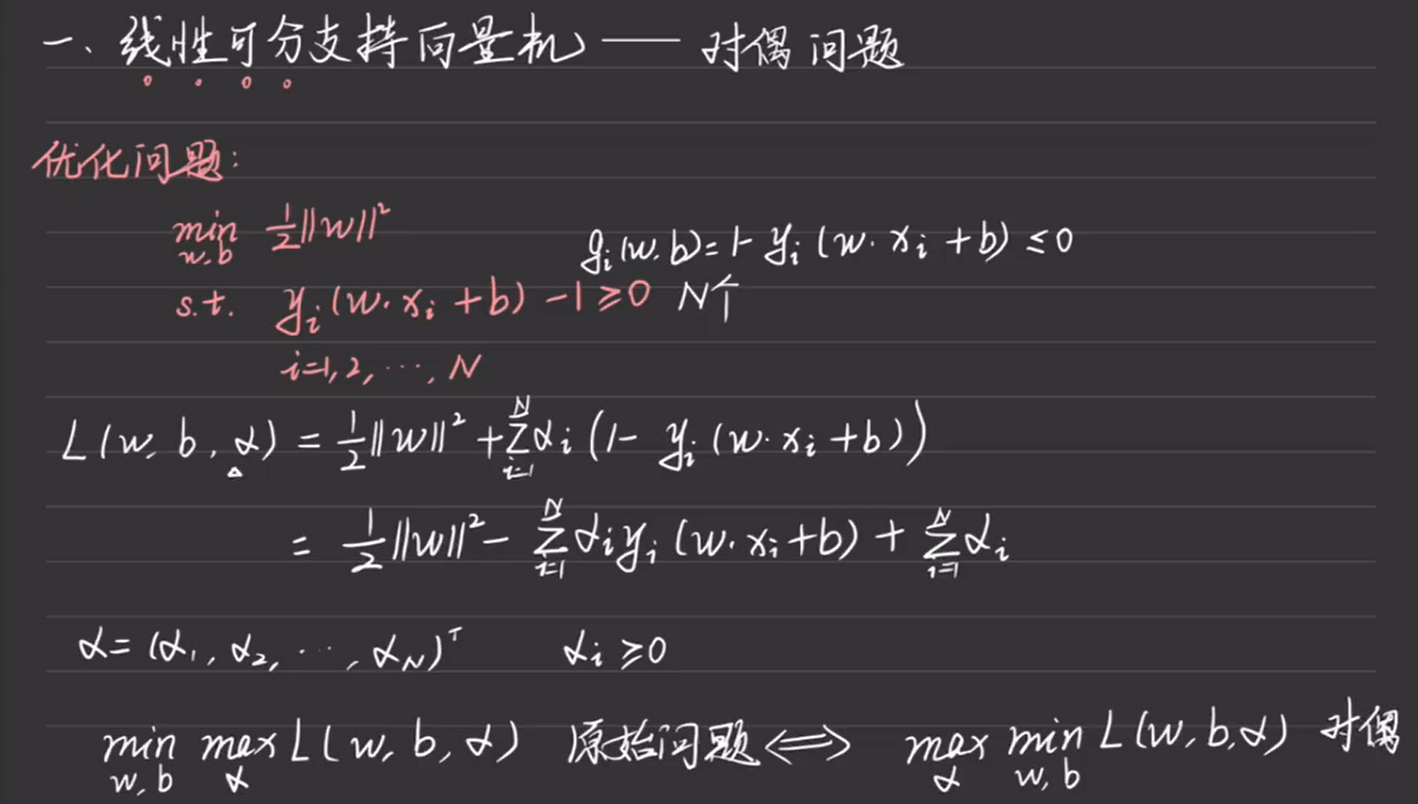 一、线性可分支持向量机 —— 对偶问题
优化问题:
min w,b 1/2||w||²
g_i(w,b)=1-y_i(w·x_i+b)≤0
s.t. y_i(w·x_i+b)-1≥0 N个
i=1,2,⋯,N
L(w,b,α)=1/2||w||²+∑_{i=1}^{N}α_i(1-y_i(w·x_i+b))
=1/2||w||²-∑_{i=1}^{N}α_i y_i(w·x_i+b)+∑_{i=1}^{N}α_i
α=(α₁,α₂,⋯,α_N)^T α_i≥0
min w,b max α L(w,b,α) 原始问题 ⟺ max α min w,b L(w,b,α) 对偶